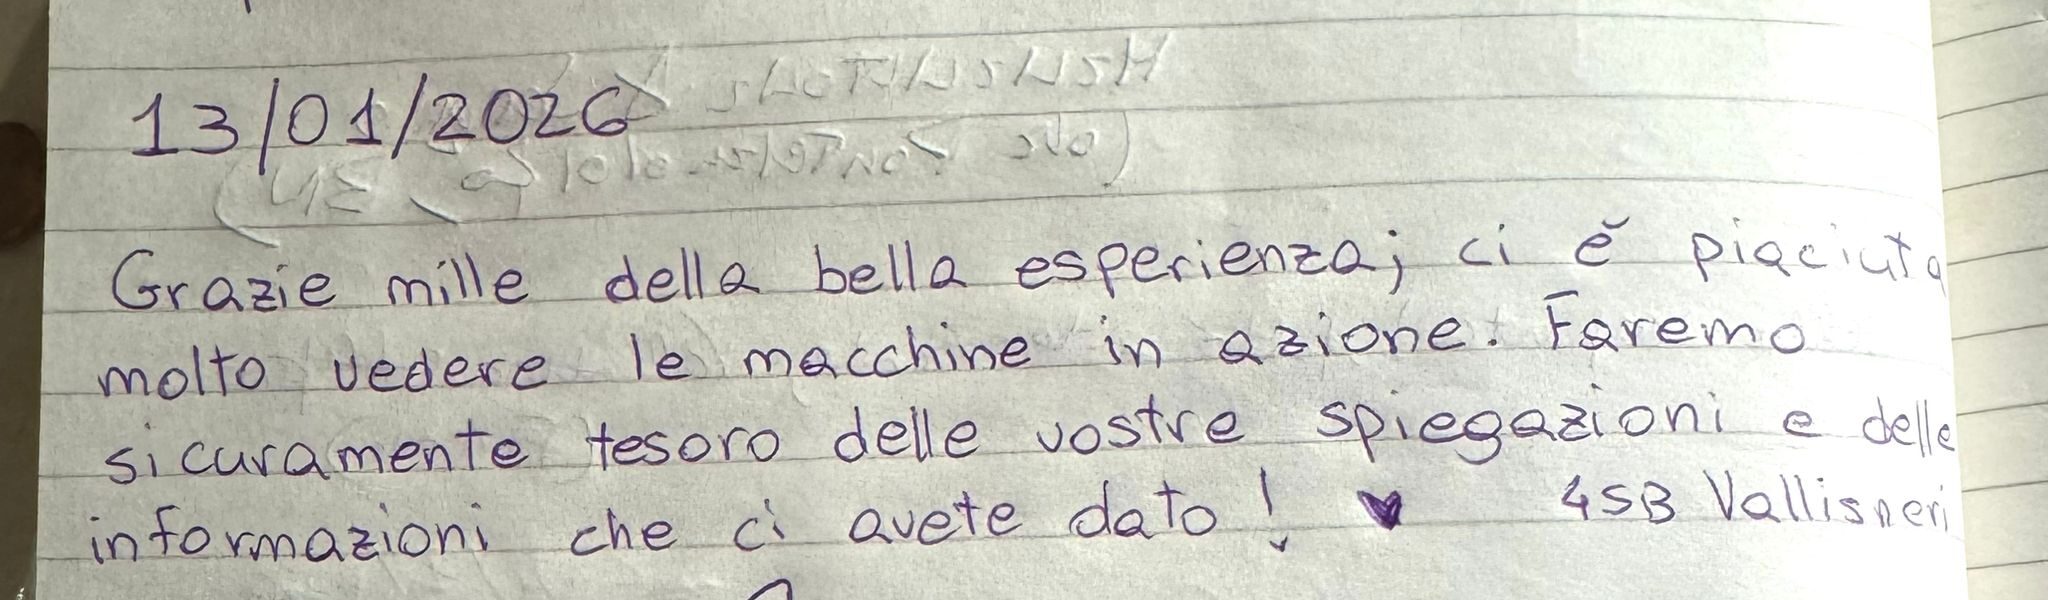 13/01/2026
Grazie mille della bella esperienza; ci è piaciuta
molto vedere le macchine in azione. Faremo
sicuramente tesoro delle vostre spiegazioni e delle
informazioni che ci avete dato! ♥ 4SB Vallisneri